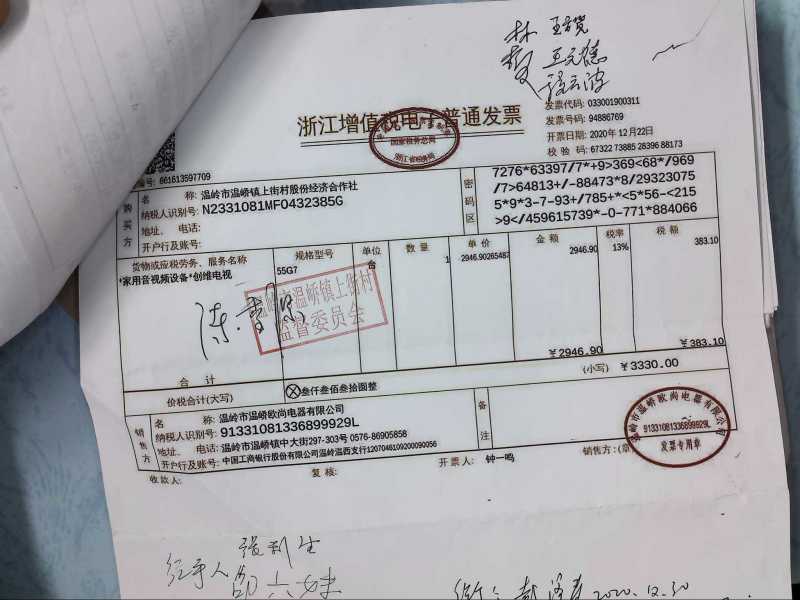 浙江增值税电子普通发票
国家税务总局
浙江省税务局
发票代码: 033001900311
发票号码: 94886769
开票日期: 2020年12月22日
校验码: 67322 73885 28396 88173
编号: 661613597709
购买方
名称: 温岭市温峤镇上街村股份经济合作社
纳税人识别号: N2331081MF0432385G
地址、电话:
开户行及账号:
密码区
7276*63397/7*+9>369<68*/969
/7>64813+/-88473*8/29323075
5*9*3-7-93+/785+*<5*56-<215
>9</459615739*-0-771*884066
货物或应税劳务、服务名称 规格型号 单位 数量 单价 金额 税率 税额
*家用音视频设备*创维电视 55G7 台 1 2946.90265487 2946.90 13% 383.10
温岭市温峤镇上街村
监督委员会
合计 ¥2946.90 ¥383.10
价税合计(大写) ⊗叁仟叁佰叁拾圆整 (小写) ¥3330.00
销售方
名称: 温岭市温峤欧尚电器有限公司
纳税人识别号: 91331081336899929L
地址、电话: 温岭市温峤镇中大街297-303号 0576-86905858
开户行及账号: 中国工商银行股份有限公司温岭温西支行1207048109200090056
备注
温岭市温峤欧尚电器有限公司
91331081336899929L
发票专用章
收款人: 复核: 开票人: 钟一鸣 销售方:(章)
经手人
2020.12.30